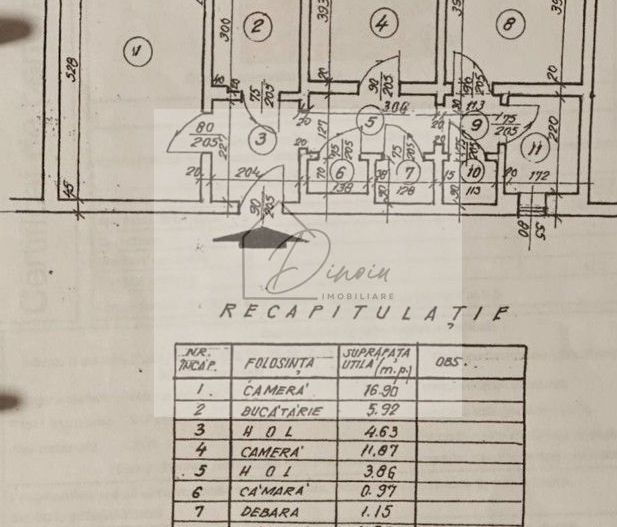 393
35
39
300
2
4
8
1
528
20
20
75
205
90
205
90
205
80
205
3
227
20
306
5
127
20
113
9
75
205
220
11
20
204
75
205
6
138
70
75
205
7
128
15
10
113
90
20
172
15
90
205
80
55
Dinoiu
IMOBILIARE
RECAPITULAȚIE
NR. ÎNCĂP. FOLOSINȚA SUPRAFAȚA UTILĂ (m.p.) OBS.
1 CAMERĂ 16.90
2 BUCĂTĂRIE 5.92
3 HOL 4.63
4 CAMERĂ 11.87
5 HOL 3.86
6 CĂMARĂ 0.97
7 DEBARA 1.15